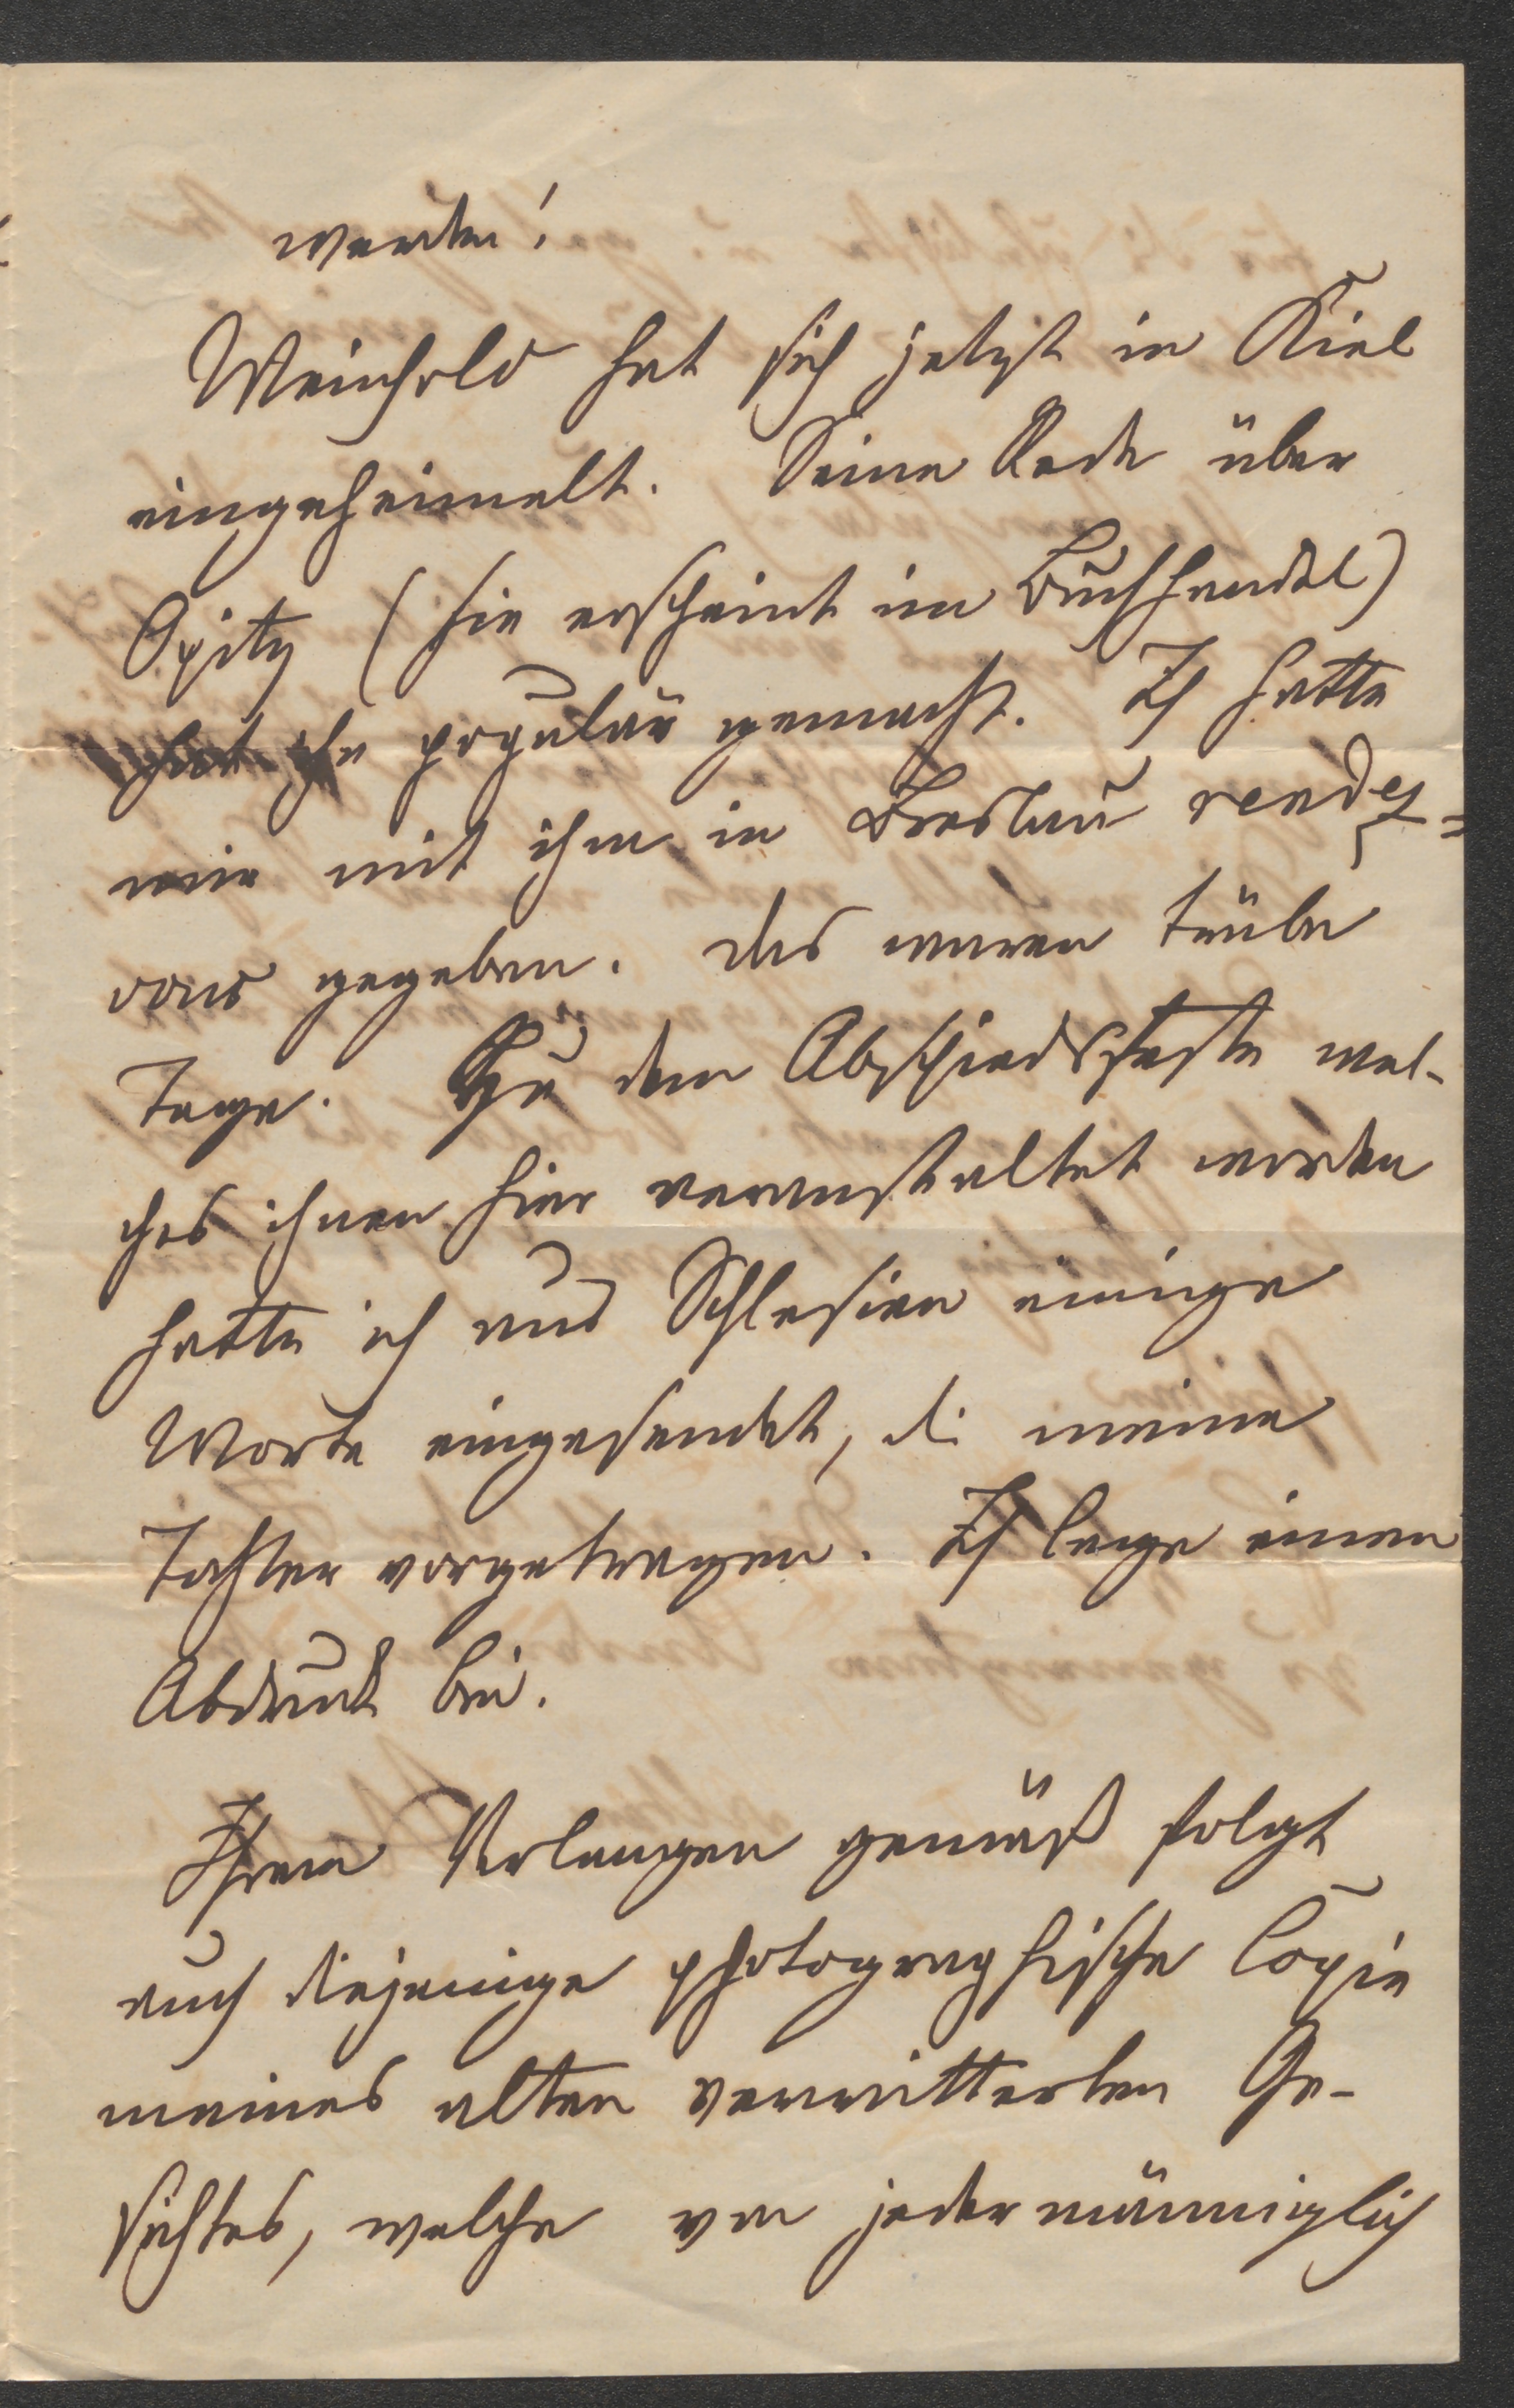 werden!
Weinhold hat sich jetzt in Kiel
eingeheimelt. Seine Rede über
Opitz (sie erscheint im Buchhandel)
hat ihn populär gemacht. Ich hatte
mir mit ihm in Breslau rendez=
vous gegeben. Das waren trübe
Tage. Zu dem Abschiedsfeste wel-
ches ihnen hier veranstaltet worden
hatte ich aus Schlesien einige
Worte eingesendet, die meine
Tochter vorgetragen. Ich lege einen
Abdruck bei.
Ihrem Verlangen gemäß folgt
auch diejenige photographische Copie
meines alten verwitterten Ge-
sichtes, welche von jedermänniglich